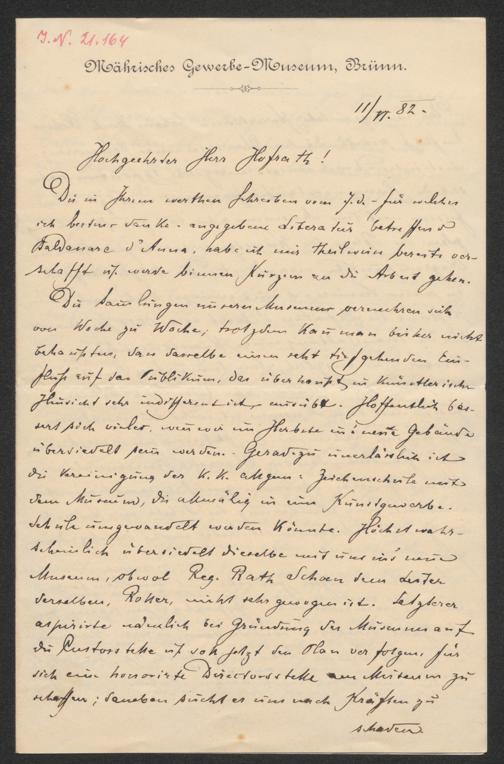 J. N. 21.164
Mährisches Gewerbe-Museum, Brünn.
11/VI. 82.
Hochgeehrter Herr Hofrath!
Die in Ihrem werthen Schreiben vom 7. d. - für welches
ich bestens danke - angegebene Literatur betreffend
Baldasare d'Anna, habe ich mir theilweise bereits ver-
schafft u. werde binnen Kurzem an die Arbeit gehen.
Die Samlungen unseres Museums vermehren sich
von Woche zu Woche; trotzdem kan man bisher nicht
behaupten, dass dasselbe einen sehr tiefgehenden Ein-
fluss auf das Publikum, das überhaupt in künstlerischer
Hinsicht sehr indifferent ist, ausübt. Hoffentlich bes-
sert sich vieles, wen wir im Herbste in's neue Gebäude
übersiedelt sein werden. - Geradezu unerlässlich ist
die Vereinigung der K. K. allgem. Zeichenschule mit
dem Museum, die allmälig in eine Kunstgewerbe-
schule umgewandelt werden könnte. Höchst wahr-
scheinlich übersiedelt dieselbe mit uns in's neue
Museum, obwol Reg. Rath Schoen dem Leiter
derselben, Roller, nicht sehr gewogen ist. Letzterer
aspirirte nämlich bei Gründung des Museums auf
die Custosstelle u. soll jetzt den Plan verfolgen, für
sich eine honorirte Directorsstelle am Museum zu
schaffen; daneben sucht er uns nach Kräften zu
schaden